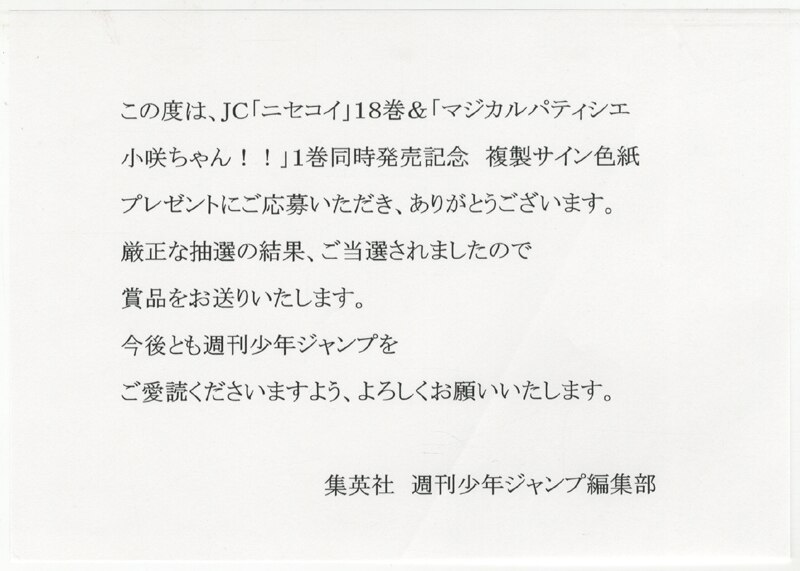 この度は、JC「ニセコイ」18巻&「マジカルパティシエ
小咲ちゃん！！」1巻同時発売記念　複製サイン色紙
プレゼントにご応募いただき、ありがとうございます。
厳正な抽選の結果、ご当選されましたので
賞品をお送りいたします。
今後とも週刊少年ジャンプを
ご愛読くださいますよう、よろしくお願いいたします。
集英社　週刊少年ジャンプ編集部